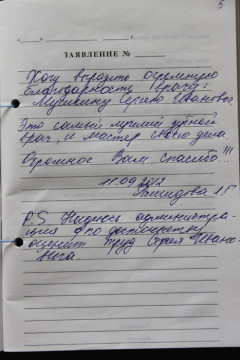 5
"___" ______ г.
ЗАЯВЛЕНИЕ № ____
Хочу выразить огромную
благодарность врачу:
Сергею Ивановичу.
Это самый лучший зубной
врач, и мастер своего дела.
Огромное Вам спасибо!!!
11.09.2012
P.S Надеюсь администра-
ция по достоинству
оценит труд Сергея Ивано-
вича